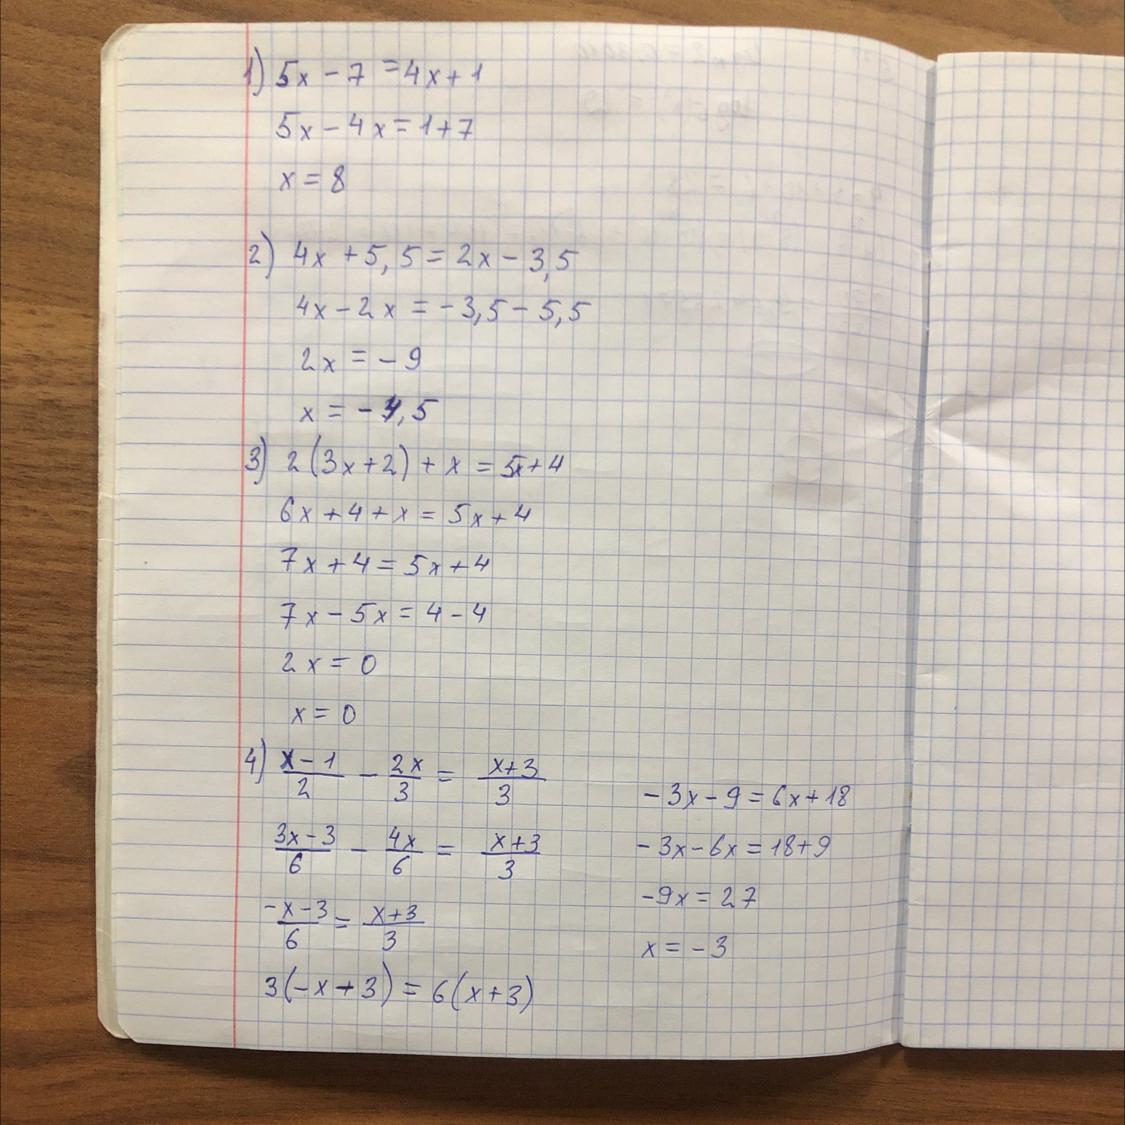 1) 5x - 7 = 4x + 1
5x - 4x = 1 + 7
x = 8
2) 4x + 5,5 = 2x - 3,5
4x - 2x = -3,5 - 5,5
2x = -9
x = -4,5
3) 2(3x + 2) + x = 5x + 4
6x + 4 + x = 5x + 4
7x + 4 = 5x + 4
7x - 5x = 4 - 4
2x = 0
x = 0
4) (x - 1)/2 - 2x/3 = (x + 3)/3
(3x - 3)/6 - 4x/6 = (x + 3)/3
(-x - 3)/6 = (x + 3)/3
3(-x - 3) = 6(x + 3)
-3x - 9 = 6x + 18
-3x - 6x = 18 + 9
-9x = 27
x = -3